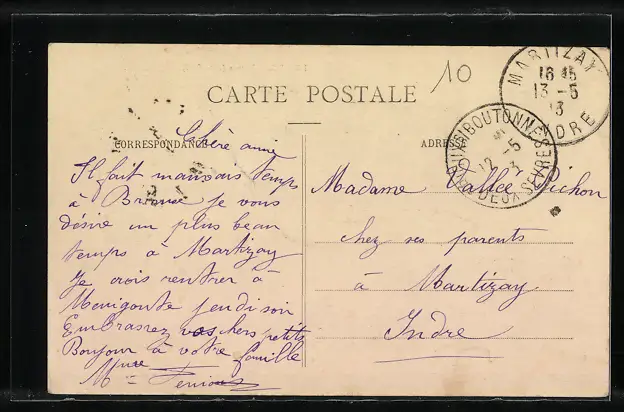 CARTE POSTALE
10
MARTIZAY
16 45
13 - 5
13
INDRE
BOUTONNE
12 - 5
DEUX SEVRES
CORRESPONDANCE
Chère amie
Il fait mauvais temps
à je vous
désire un plus beau
temps à Martizay
Je crois rentrer à
Menigoute jeudi soir
Embrassez vos chers petits
Bonjour à votre famille
Madame Vallée Pichon
chez ses parents
à Martizay
Indre